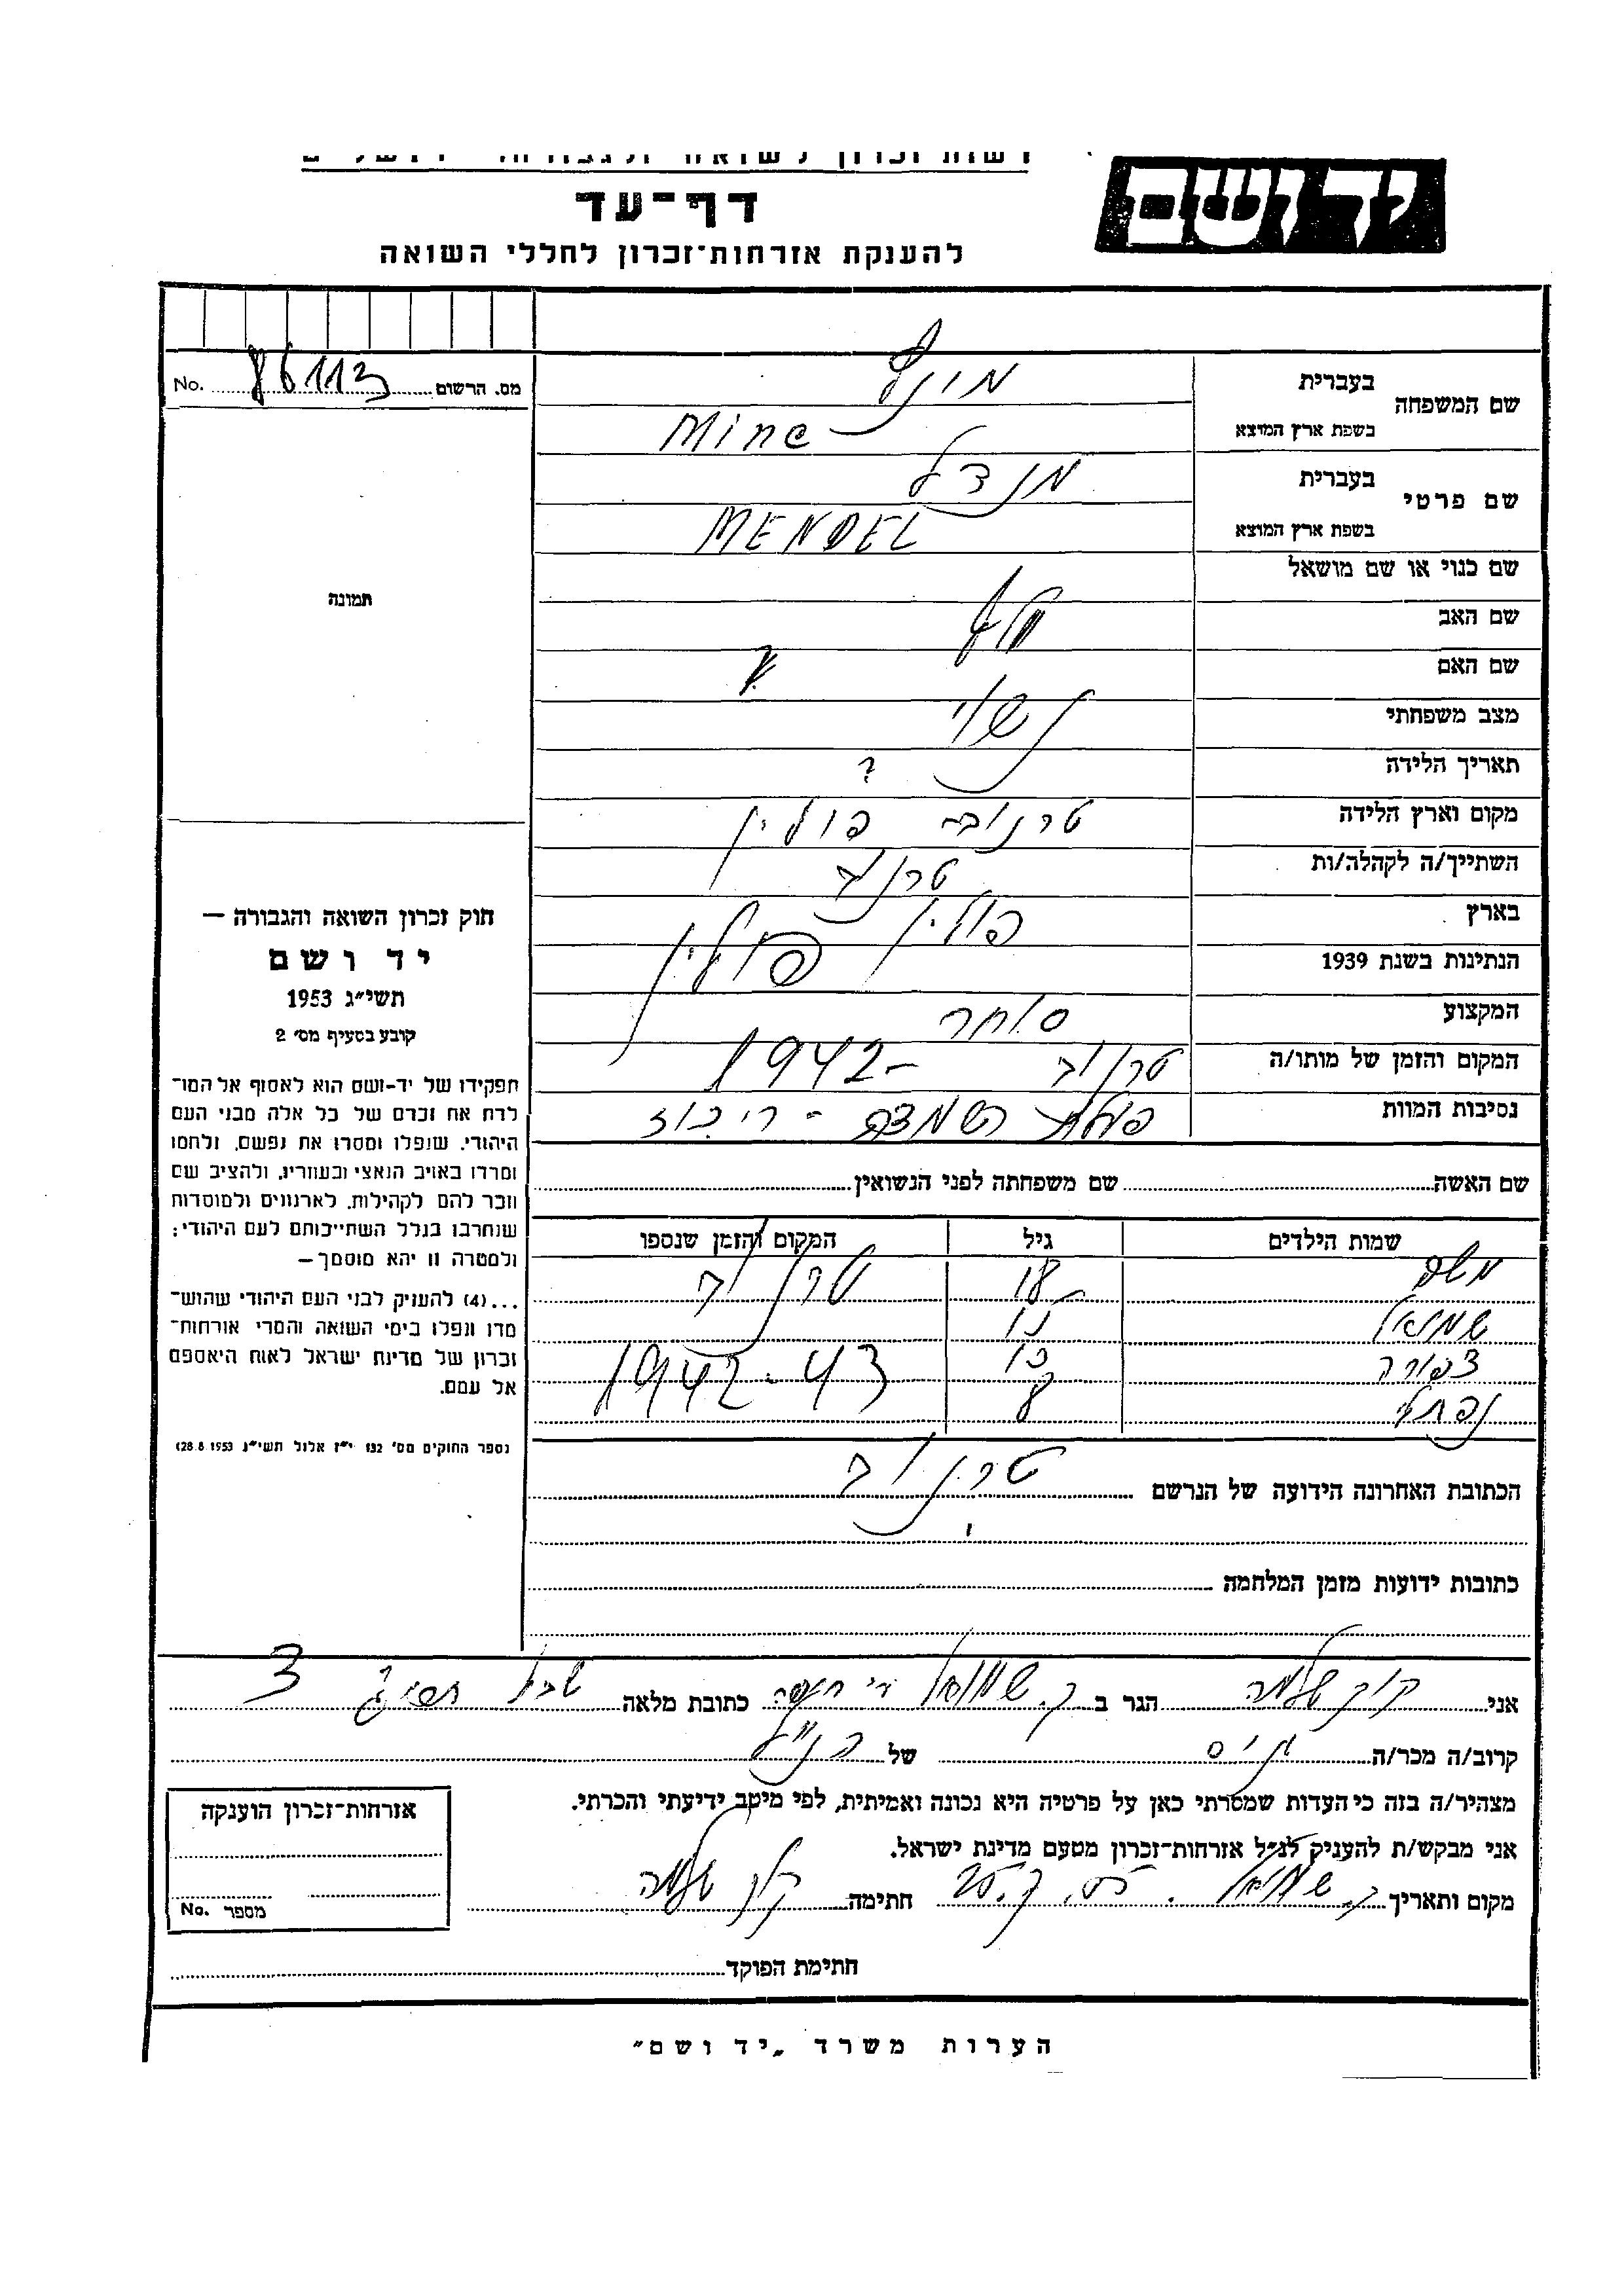 יד ושם
דף־עד
להענקת אזרחות־זכרון לחללי השואה
מס. הרשום 86113 No.
שם המשפחה
בעברית
בשפת ארץ המוצא Mine
שם פרטי
בעברית מנדל
בשפת ארץ המוצא MENDEL
שם כנוי או שם מושאל
שם האב
שם האם
מצב משפחתי נשוי
תאריך הלידה ?
מקום וארץ הלידה טרנוב פולין
השתייך/ה לקהלה/ות טרנוב
בארץ פולין
הנתינות בשנת 1939 פולין
המקצוע סוחר
המקום והזמן של מותו/ה טרנוב - 1942
נסיבות המוות פעולת השמדה - ריכוז
תמונה
חוק זכרון השואה והגבורה —
יד ושם
תשי״ג 1953
קובע בסעיף מס׳ 2
תפקידו של יד-ושם הוא לאסוף אל המו־
לדת את זכרם של כל אלה מבני העם
היהודי, שנפלו ומסרו את נפשם, נלחמו
ומרדו באויב הנאצי ובעוזריו, ולהציב שם
וזכר להם לקהילות, לארגונים ולמוסדות
שנחרבו בגלל השתייכותם לעם היהודי;
ולמטרה זו יהא מוסמך —
...(4) להעניק לבני העם היהודי שהוש־
מדו ונפלו בימי השואה והמרי אזרחות־
זכרון של מדינת ישראל לאות היאספם
אל עמם.
(ספר החוקים מס׳ 132 י״ז אלול תשי״ג 28.8.1953)
שם האשה שם משפחתה לפני הנשואין
שמות הילדים גיל המקום והזמן שנספו
משה 18 טרנוב
שמואל
צפורה 1942-43
נפתלי 8
הכתובת האחרונה הידועה של הנרשם טרנוב
כתובות ידועות מזמן המלחמה
אני שלמה הגר ב ק. שמואל חיפה כתובת מלאה 3
קרוב/ה מכר/ה גיס של הנ״ל
מצהיר/ה בזה כי העדות שמסרתי כאן על פרטיה היא נכונה ואמיתית, לפי מיטב ידיעתי והכרתי.
אני מבקש/ת להעניק לנ״ל אזרחות־זכרון מטעם מדינת ישראל.
מקום ותאריך ק. שמואל חתימה שלמה
אזרחות־זכרון הוענקה
מספר No.
חתימת הפוקד
הערות משרד „יד ושם״